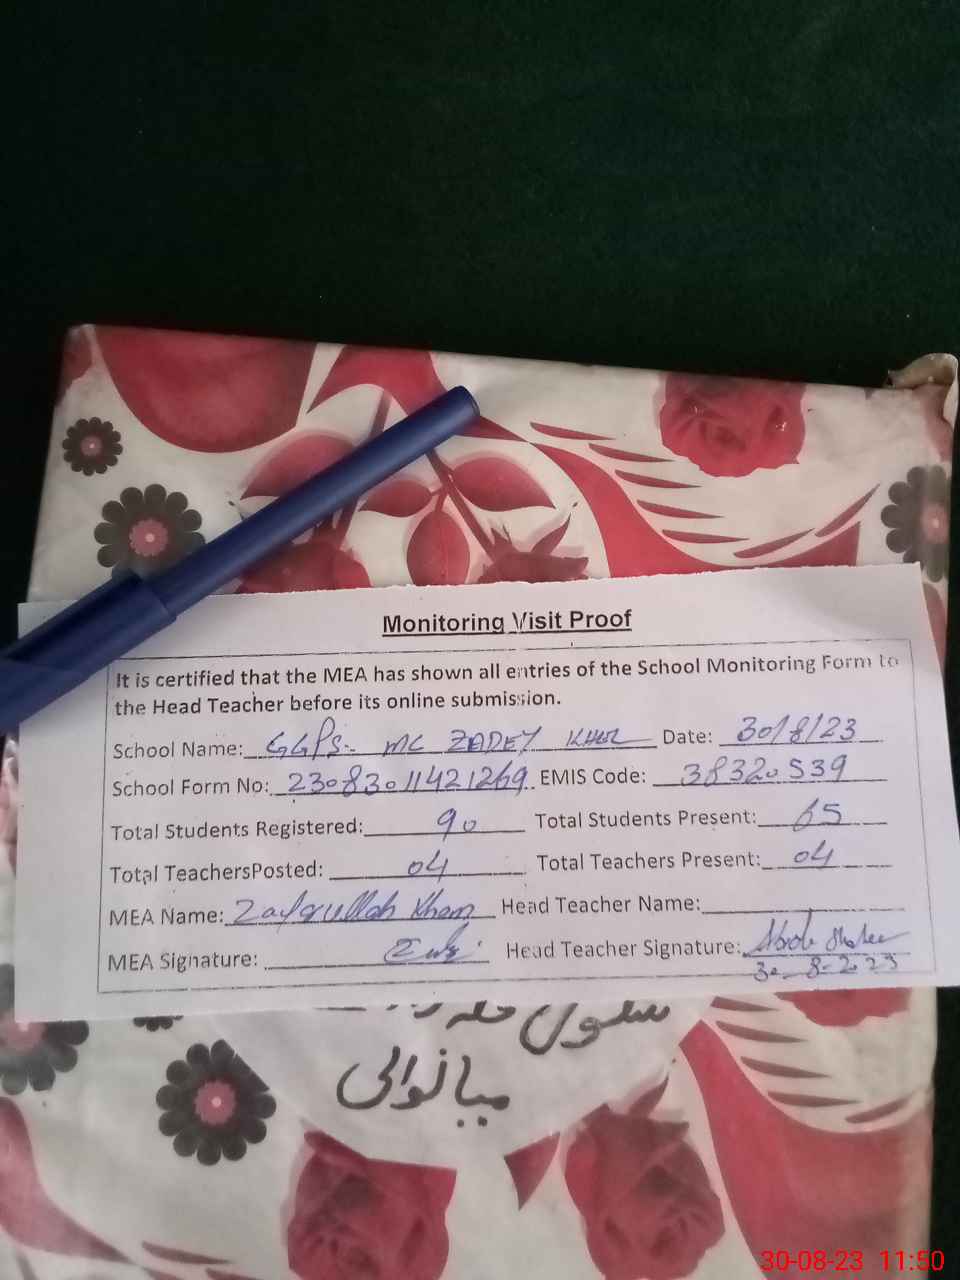 Monitoring Visit Proof
It is certified that the MEA has shown all entries of the School Monitoring Form to
the Head Teacher before its online submission.
School Name: GGPS. MC ZADEY KHEL Date: 30/8/23
School Form No: 23083011421269 EMIS Code: 38320539
Total Students Registered: 90 Total Students Present: 65
Total TeachersPosted: 04 Total Teachers Present: 04
MEA Name: Zafarullah Khan Head Teacher Name:
MEA Signature: Head Teacher Signature:
30-8-2023
میانوالی
30-08-23 11:50